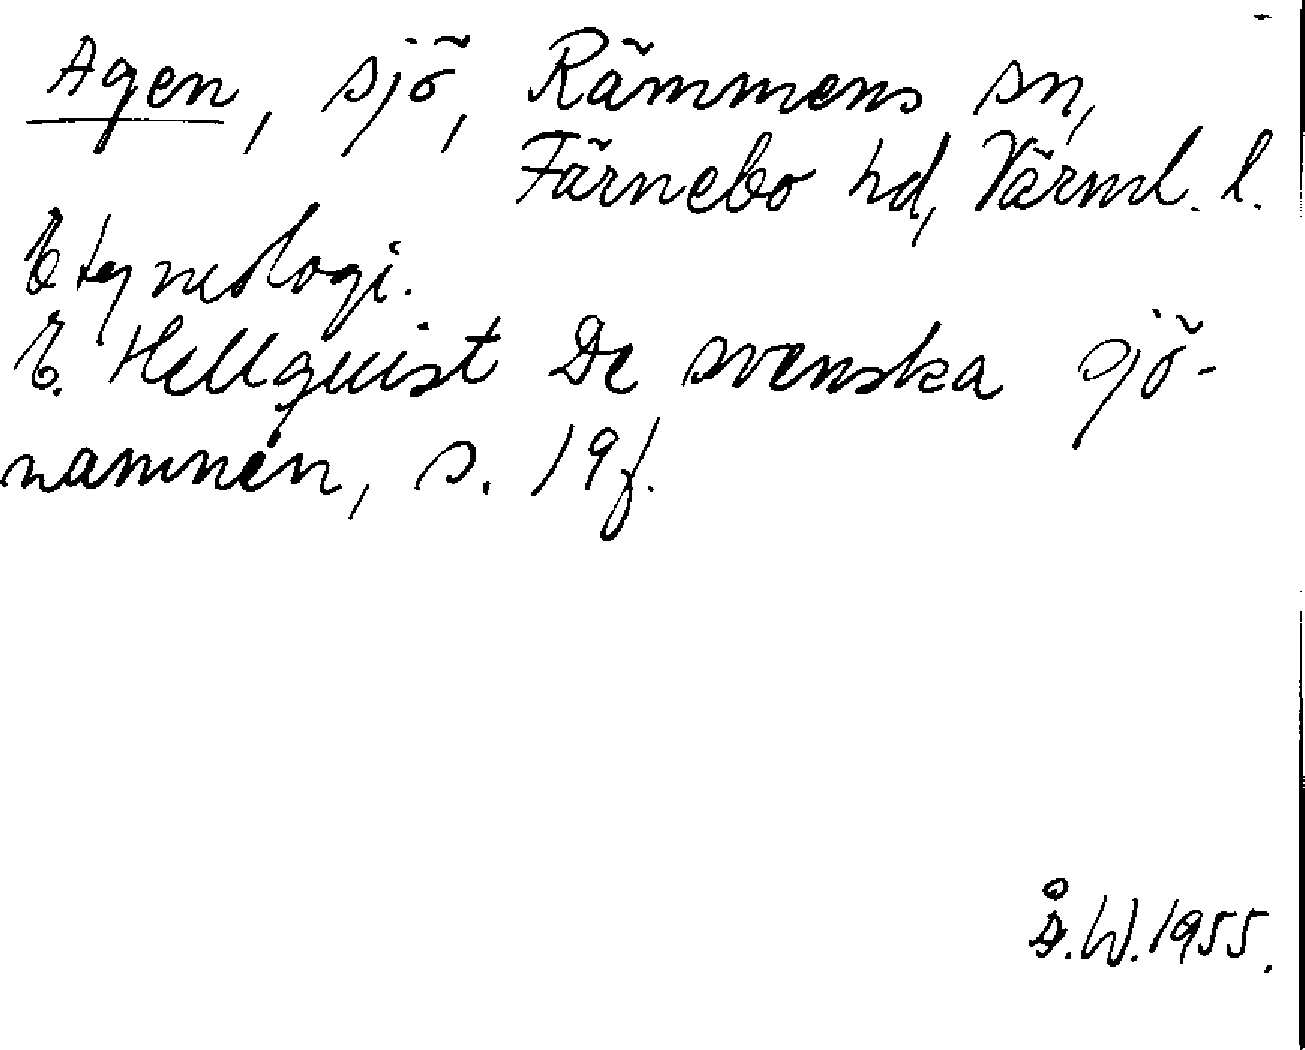 Agen, sjö, Rämmens sn,
Färnebo hd, Värml. l.
Etymologi.
E. Hellquist De svenska sjö-
namnen, s. 19f.
Å.W. 1955.